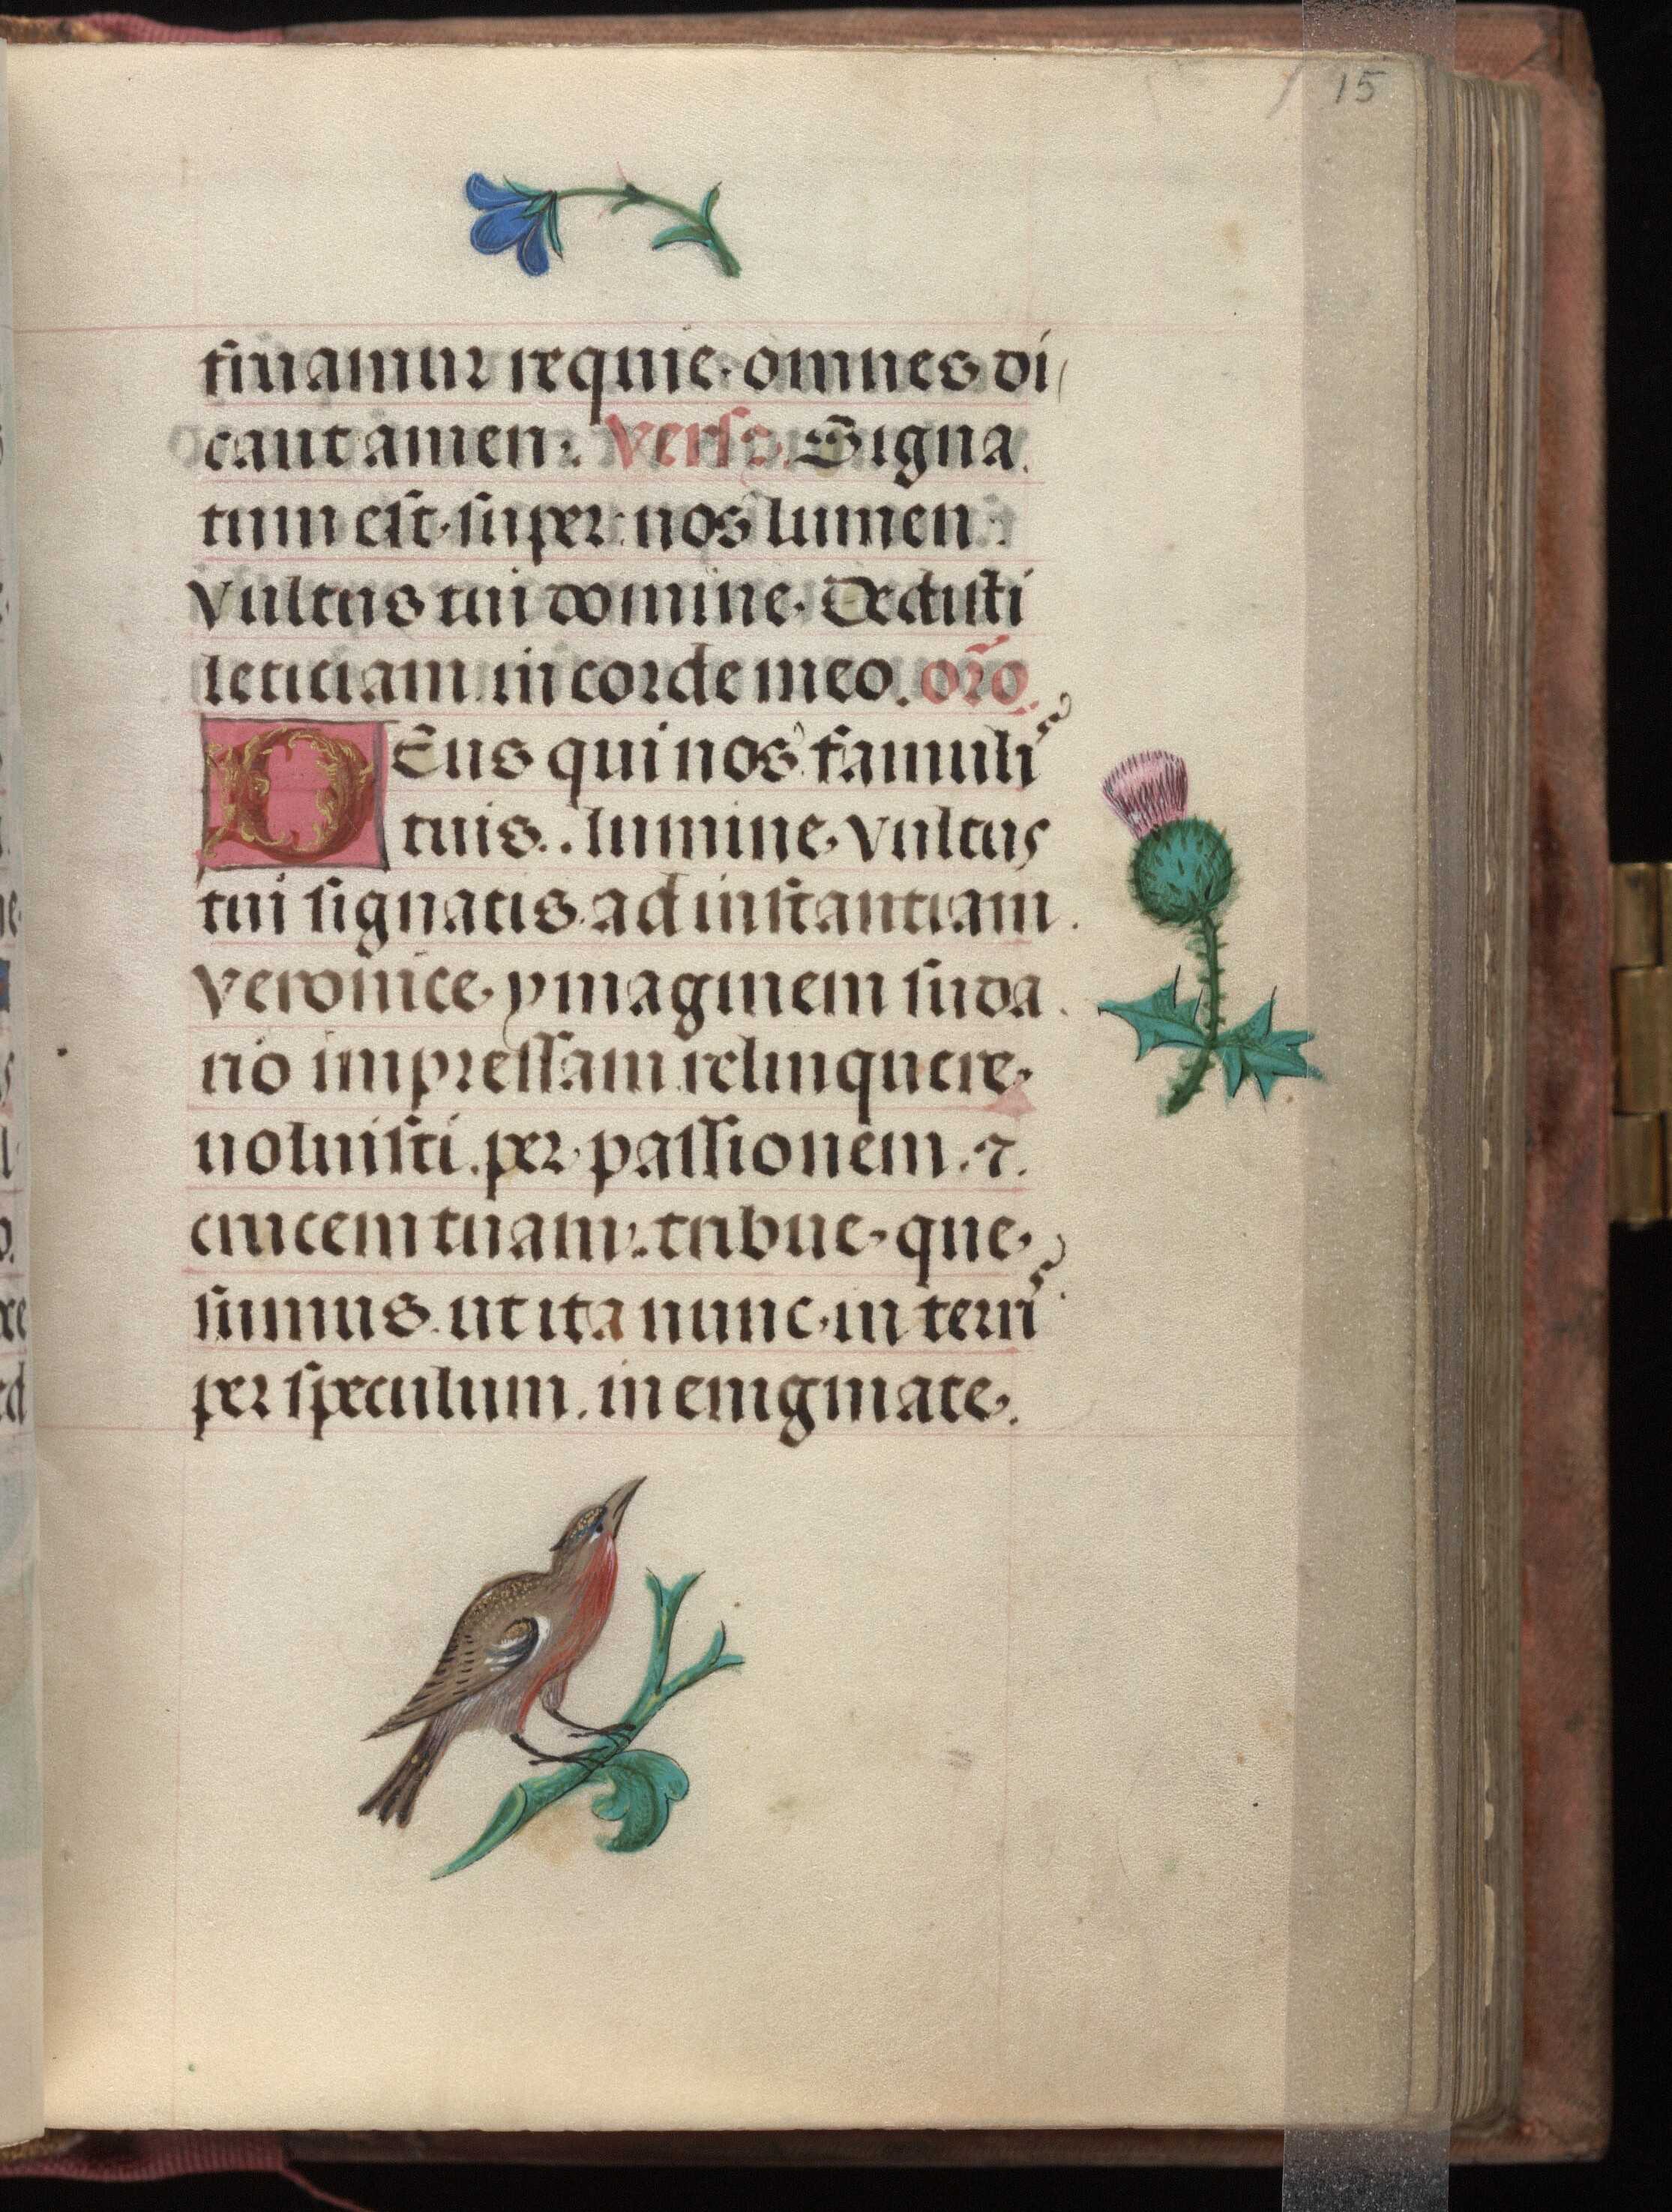 15
fruamur requie. omnes di
cant amen. Verso. Signa
tum est. super nos lumen
vultus tui domine. Dedisti
leticiam in corde meo. or̄o
Deus qui nos famulis
tuis. lumine vultus
tui signatis. ad instantiam
veronice ymaginem suda
rio impressam relinquere
voluisti. per passionem. ⁊
crucem tuam. tribue que
sumus. ut ita nunc in terris
per speculum. in enigmate.